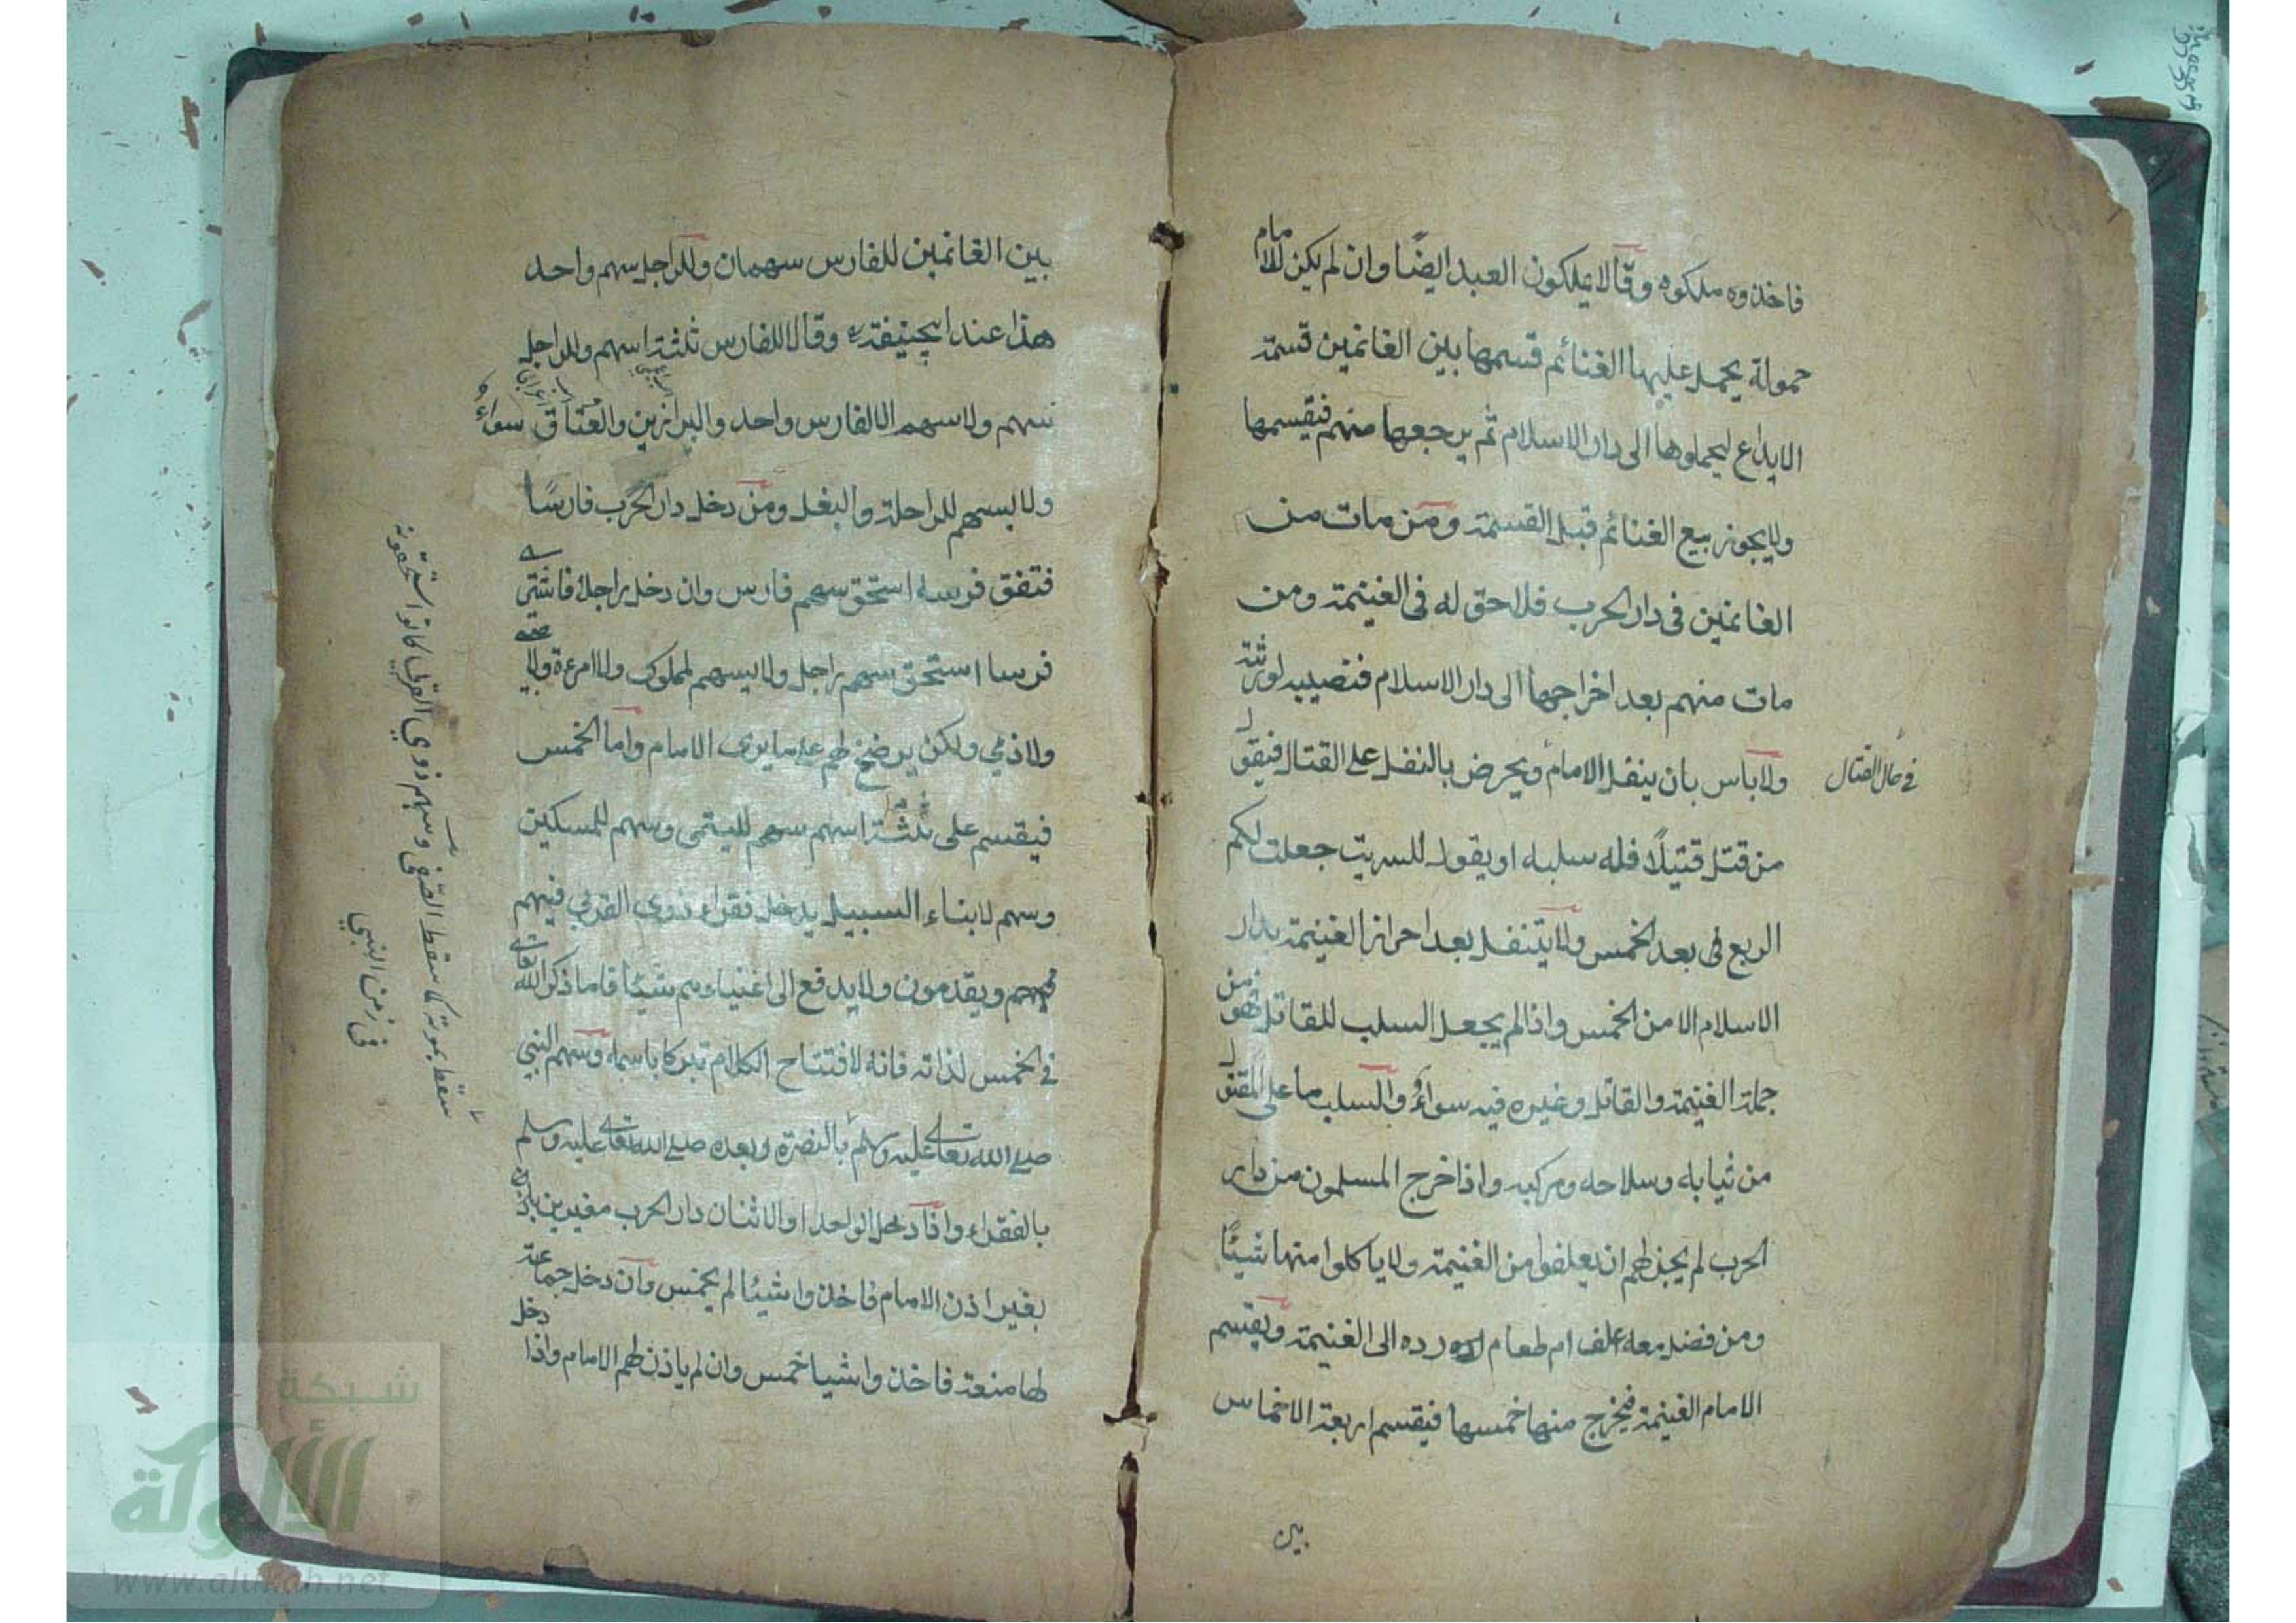 فاخذوه ملكوه وقالا يملكون العبد ايضًا وان لم يكن للامام
حمولة يحمل عليها الغنائم قسمها بين الغانمين قسمة
الايداع ليحملوها الى دار الاسلام ثم يرجعها منهم فيقسمها
ولا يجوز بيع الغنائم قبل القسمة ومن مات من
الغانمين فى دار الحرب فلا حق له فى الغنيمة ومن
مات منهم بعد اخراجها الى دار الاسلام فنصيبه لورثته
ولا باس بان ينفل الامام ويحرض بالنفل على القتال فيقول
في حال القتال
من قتل قتيلًا فله سلبه او يقول للسرية جعلت لكم
الربع فى بعد الخمس ولا يتنفل بعد احراز الغنيمة بدار
الاسلام الا من الخمس واذا لم يجعل السلب للقاتل فهو من
جملة الغنيمة والقاتل وغيره فيه سواءٌ والسلب ما على المقتول
من ثيابه وسلاحه ومركبه واذا خرج المسلمون من دار
الحرب لم يجز لهم ان يعلفوا من الغنيمة ولا ياكلوا منها شيئًا
ومن فضل معه علف ام طعام رده الى الغنيمة ويقسم
الامام الغنيمة فيخرج منها خمسها فيقسم اربعة الاخماس
بين
بين الغانمين للفارس سهمان وللراجل سهم واحد
هذا عند ابيحنيفة وقالا للفارس ثلثة اسهم وللراجل
سهم ولا سهم الا لفارس واحد والبراذين والعتاق سواءٌ
ولا يسهم للراحلة والبغل ومن دخل دار الحرب فارسًا
فتفق فرسه استحق سهم فارس وان دخل راجلا فاشترى
فرسا استحق سهم راجل ولا يسهم لمملوك ولا امرءة ولا صبي
ولا ذمي ولكن يرضخ لهم على ما يرى الامام واما الخمس
فيقسم على ثلثة اسهم سهم لليتمى وسهم للمسكين
وسهم لابناء السبيل يدخل فقراء ذوى القربي فيهم
ويقدمون ولا يدفع الى اغنياءهم شيئا فاما ذكر الله تعالى
في الخمس لذاته فانه لافتتاح الكلام تبركا باسمه وسهم النبي
صلى الله تعالى عليه وسلم بالنصرة وبعده صلى الله تعالى عليه وسلم
بالفقراء واذا دخل الواحد او الاثنان دار الحرب مغيرين
بغير اذن الامام فاخذوا شيئا لم يخمس وان دخل جماعة
لها منعة فاخذوا شيا خمس وان لم ياذن لهم الامام واذا دخل
سقط بموته كما سقط الصفى وسهم ذوي القربى كانوا استحقونه
فى زمن النبي
شبكة
الألوكة
www.alukah.net